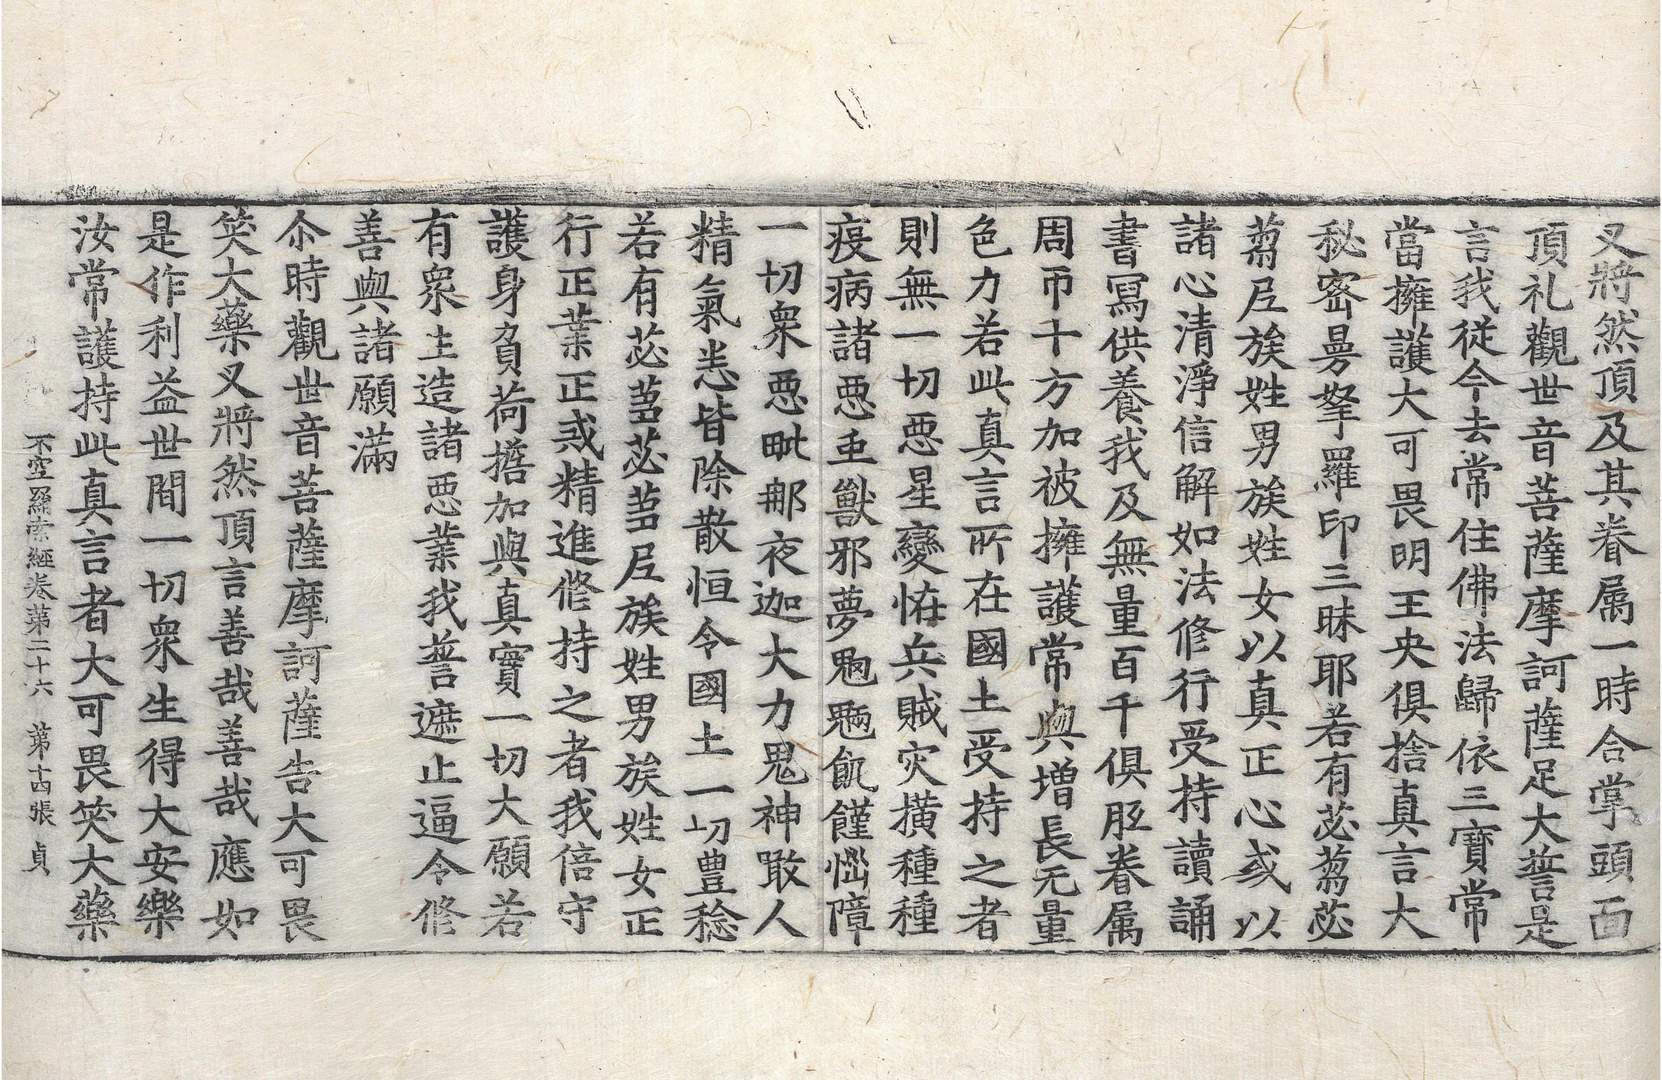 叉將然頂及其眷属一時合掌頭面
頂礼觀世音菩薩摩訶薩足大誓是
言我從今去常住佛法歸依三寶常
當擁護大可畏明王央俱捨真言大
秘密曼拏羅印三昧耶若有苾蒭苾
蒭尼族姓男族姓女以真正心或以
諸心清淨信解如法修行受持讀誦
書寫供養我及無量百千俱胝眷属
周帀十方加被擁護常與增長无量
色力若此真言所在國土受持之者
則無一切惡星變恠兵賊灾橫種種
疫病諸惡重獸邪夢魍魎飢饉𢡟障
一切衆惡毗那夜迦大力鬼神噉人
精氣悉皆除散恒令國土一切豊稔
若有苾蒭苾蒭尼族姓男族姓女正
行正業正或精進修持之者我倍守
護身負荷擔加與真實一切大願若
有衆生造諸惡業我誓遮止逼令修
善與諸願滿
尒時觀世音菩薩摩訶薩告大可畏
笑大藥叉將然頂言善哉善哉應如
是作利益世間一切衆生得大安樂
汝常護持此真言者大可畏笑大藥
不空羂索經卷第二十六 第十四張 貞